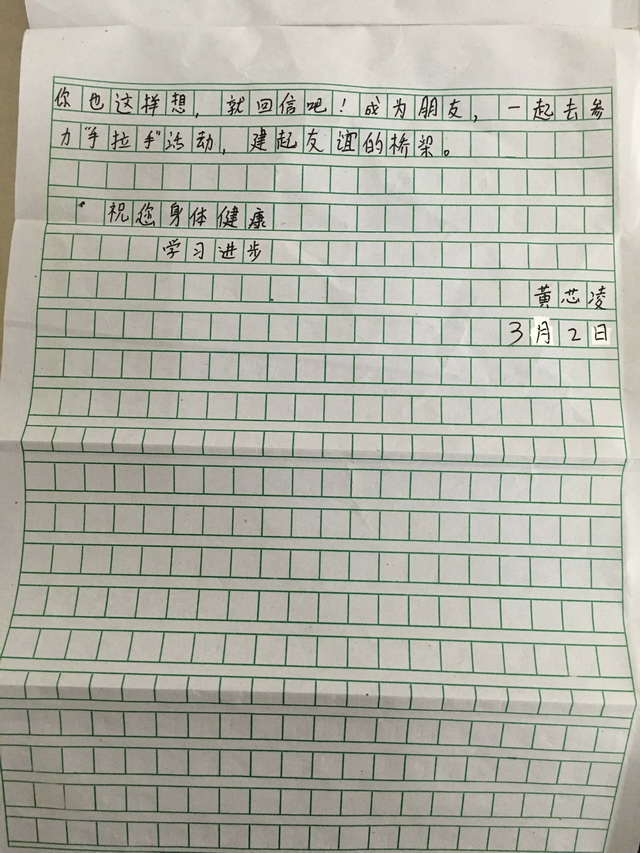 你也这样想，就回信吧！成为朋友，一起去参
力“手拉手”活动，建起友谊的桥梁。
祝您身体健康
学习进步
黄芯凌
3月2日